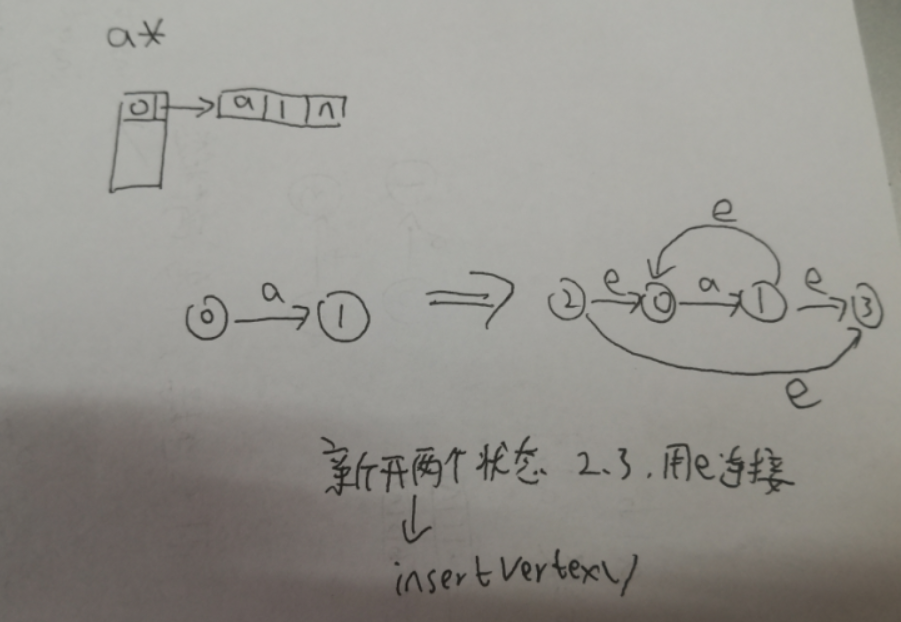 a*
0 a 1 n
e
0 a 1 ⇒ 2 e 0 a 1 e 3
e
新开两个状态 2.3.用e连接
insertVertex()